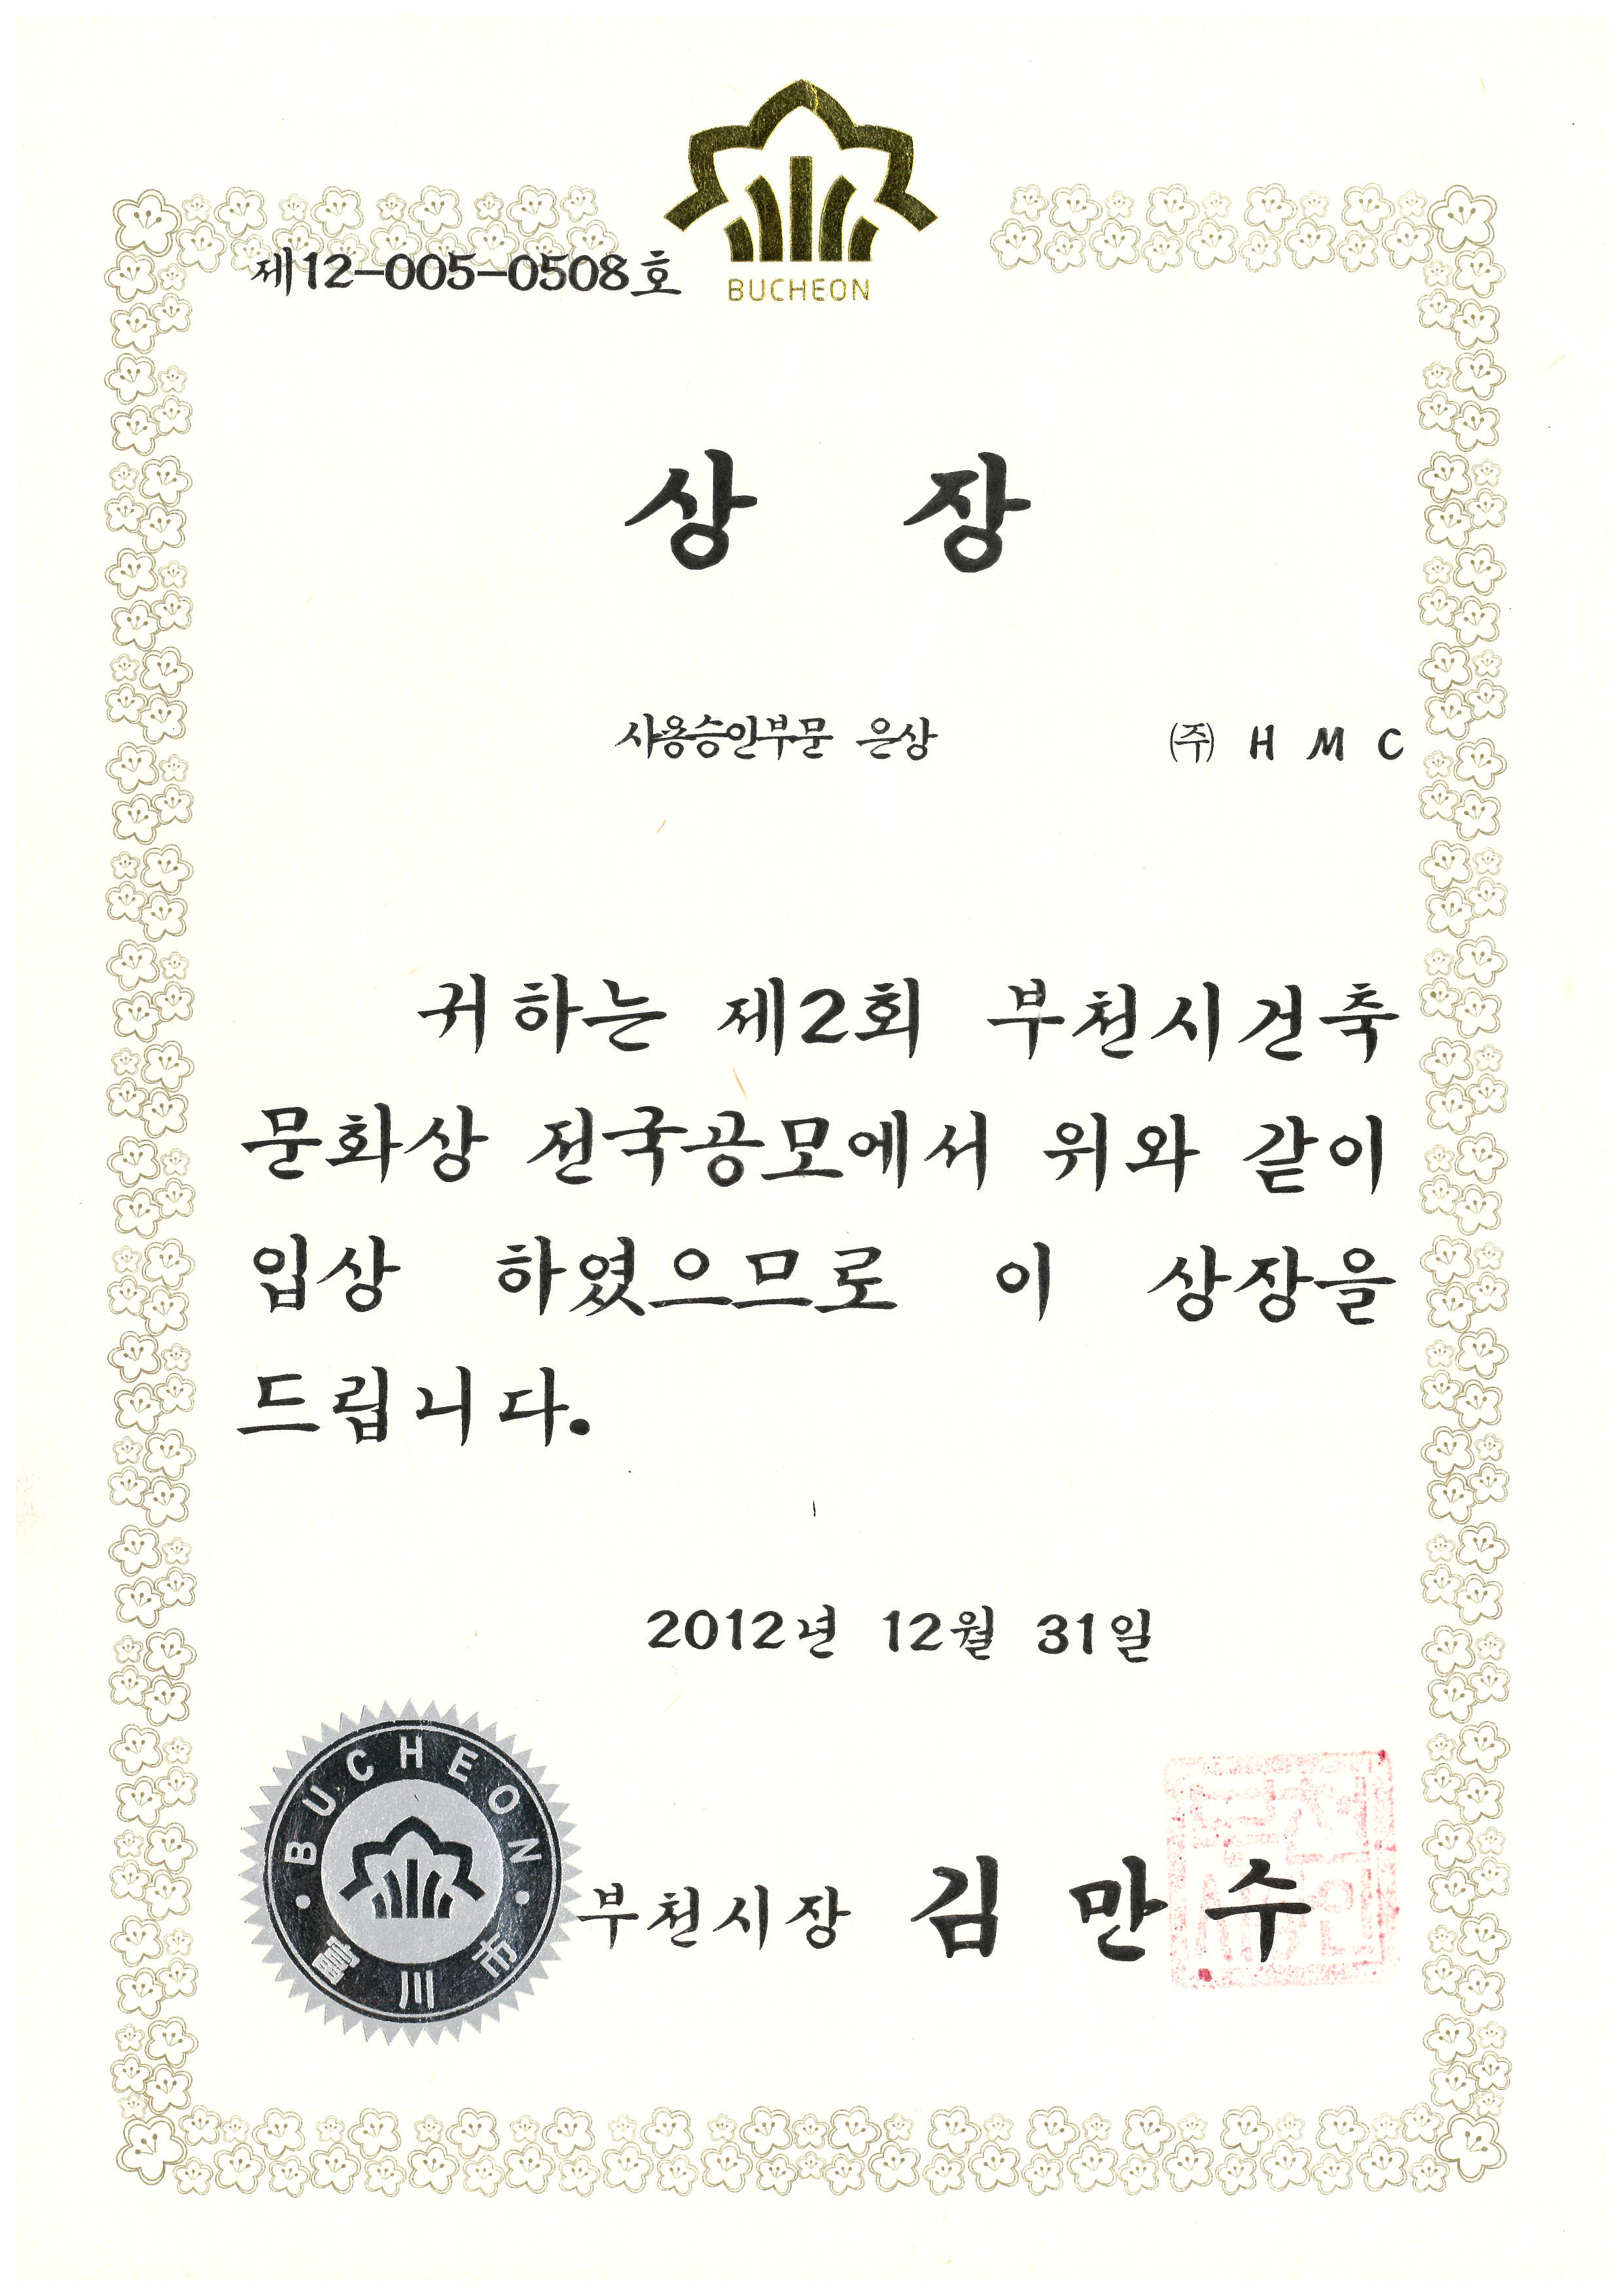 BUCHEON
제12-005-0508호
상 장
사용승인부문 은상 ㈜ H M C
귀하는 제2회 부천시건축
문화상 전국공모에서 위와 같이
입상 하였으므로 이 상장을
드립니다.
2012년 12월 31일
BUCHEON
富川市
부천시장 김만수